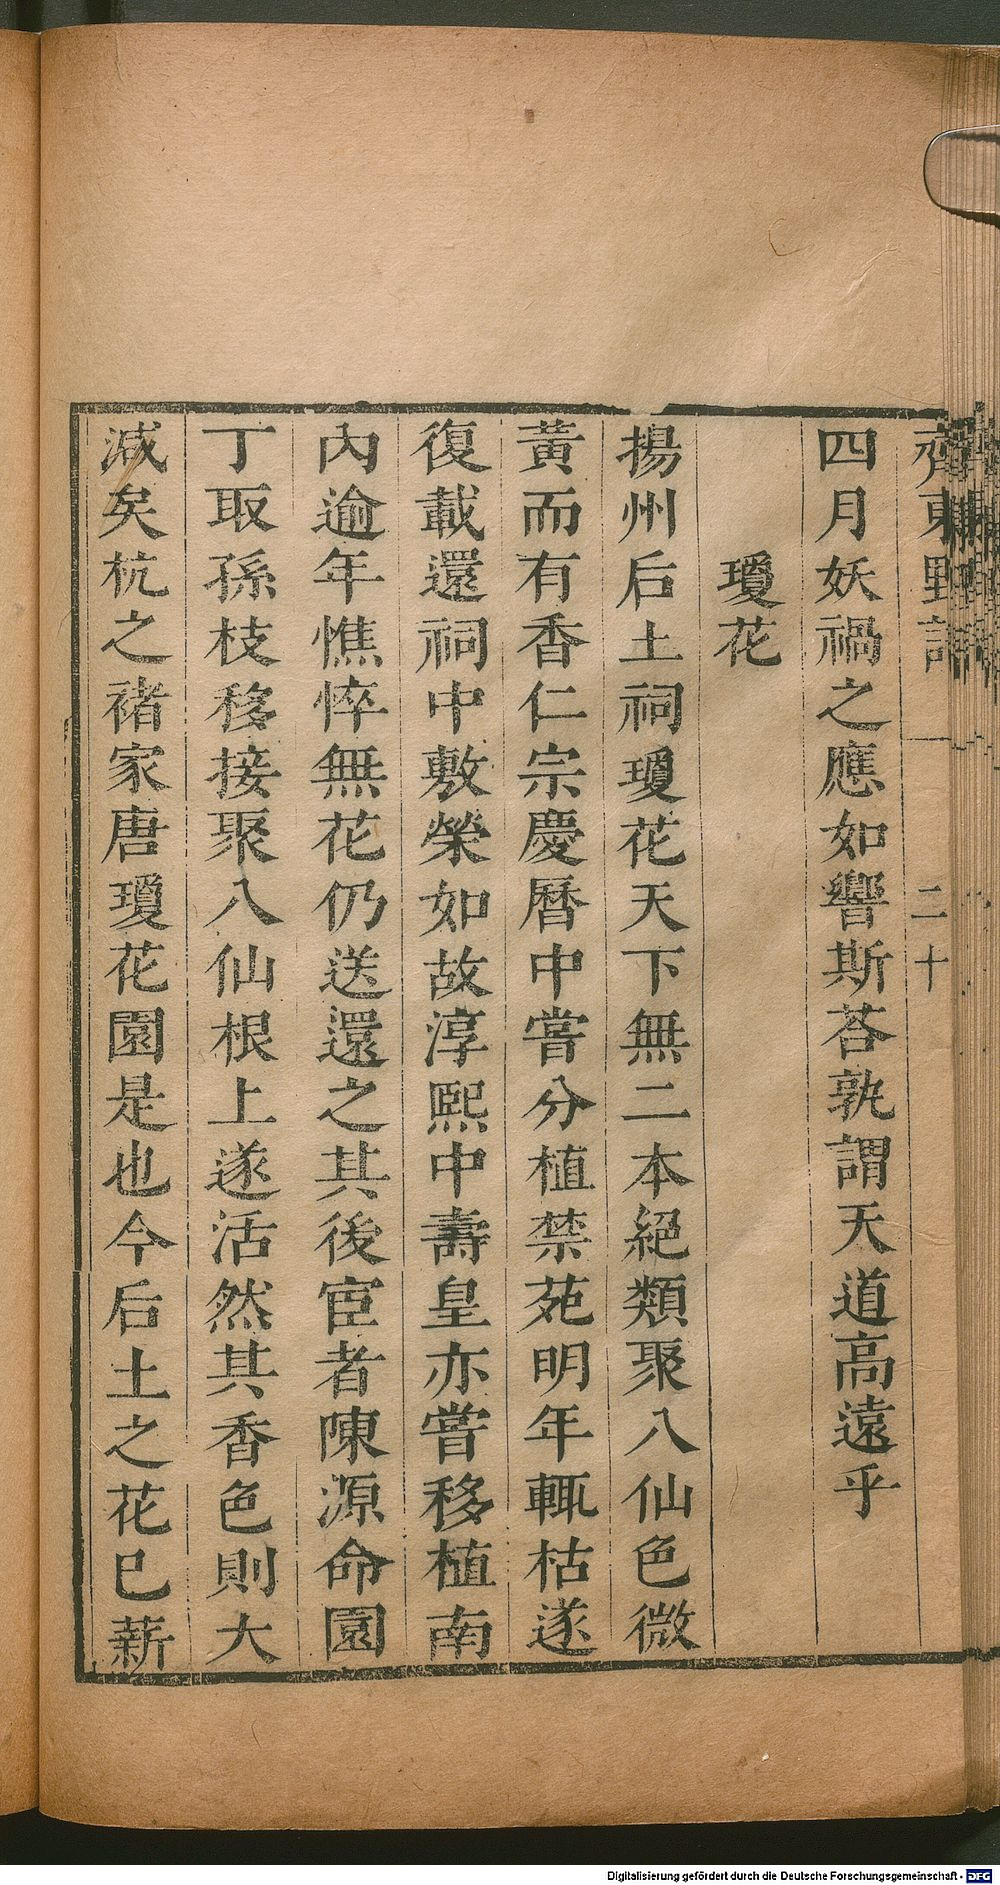 齊東野語 二十
四月妖禍之應如響斯荅孰謂天道高遠乎
瓊花
揚州后土祠瓊花天下無二本絕類聚八仙色微
黃而有香仁宗慶曆中嘗分植禁苑明年輒枯遂
復載還祠中敷榮如故淳熙中壽皇亦嘗移植南
內逾年憔悴無花仍送還之其後宦者陳源命園
丁取孫枝移接聚八仙根上遂活然其香色則大
減矣杭之褚家唐瓊花園是也今后土之花巳薪
Digitalisierung gefördert durch die Deutsche Forschungsgemeinschaft - DFG